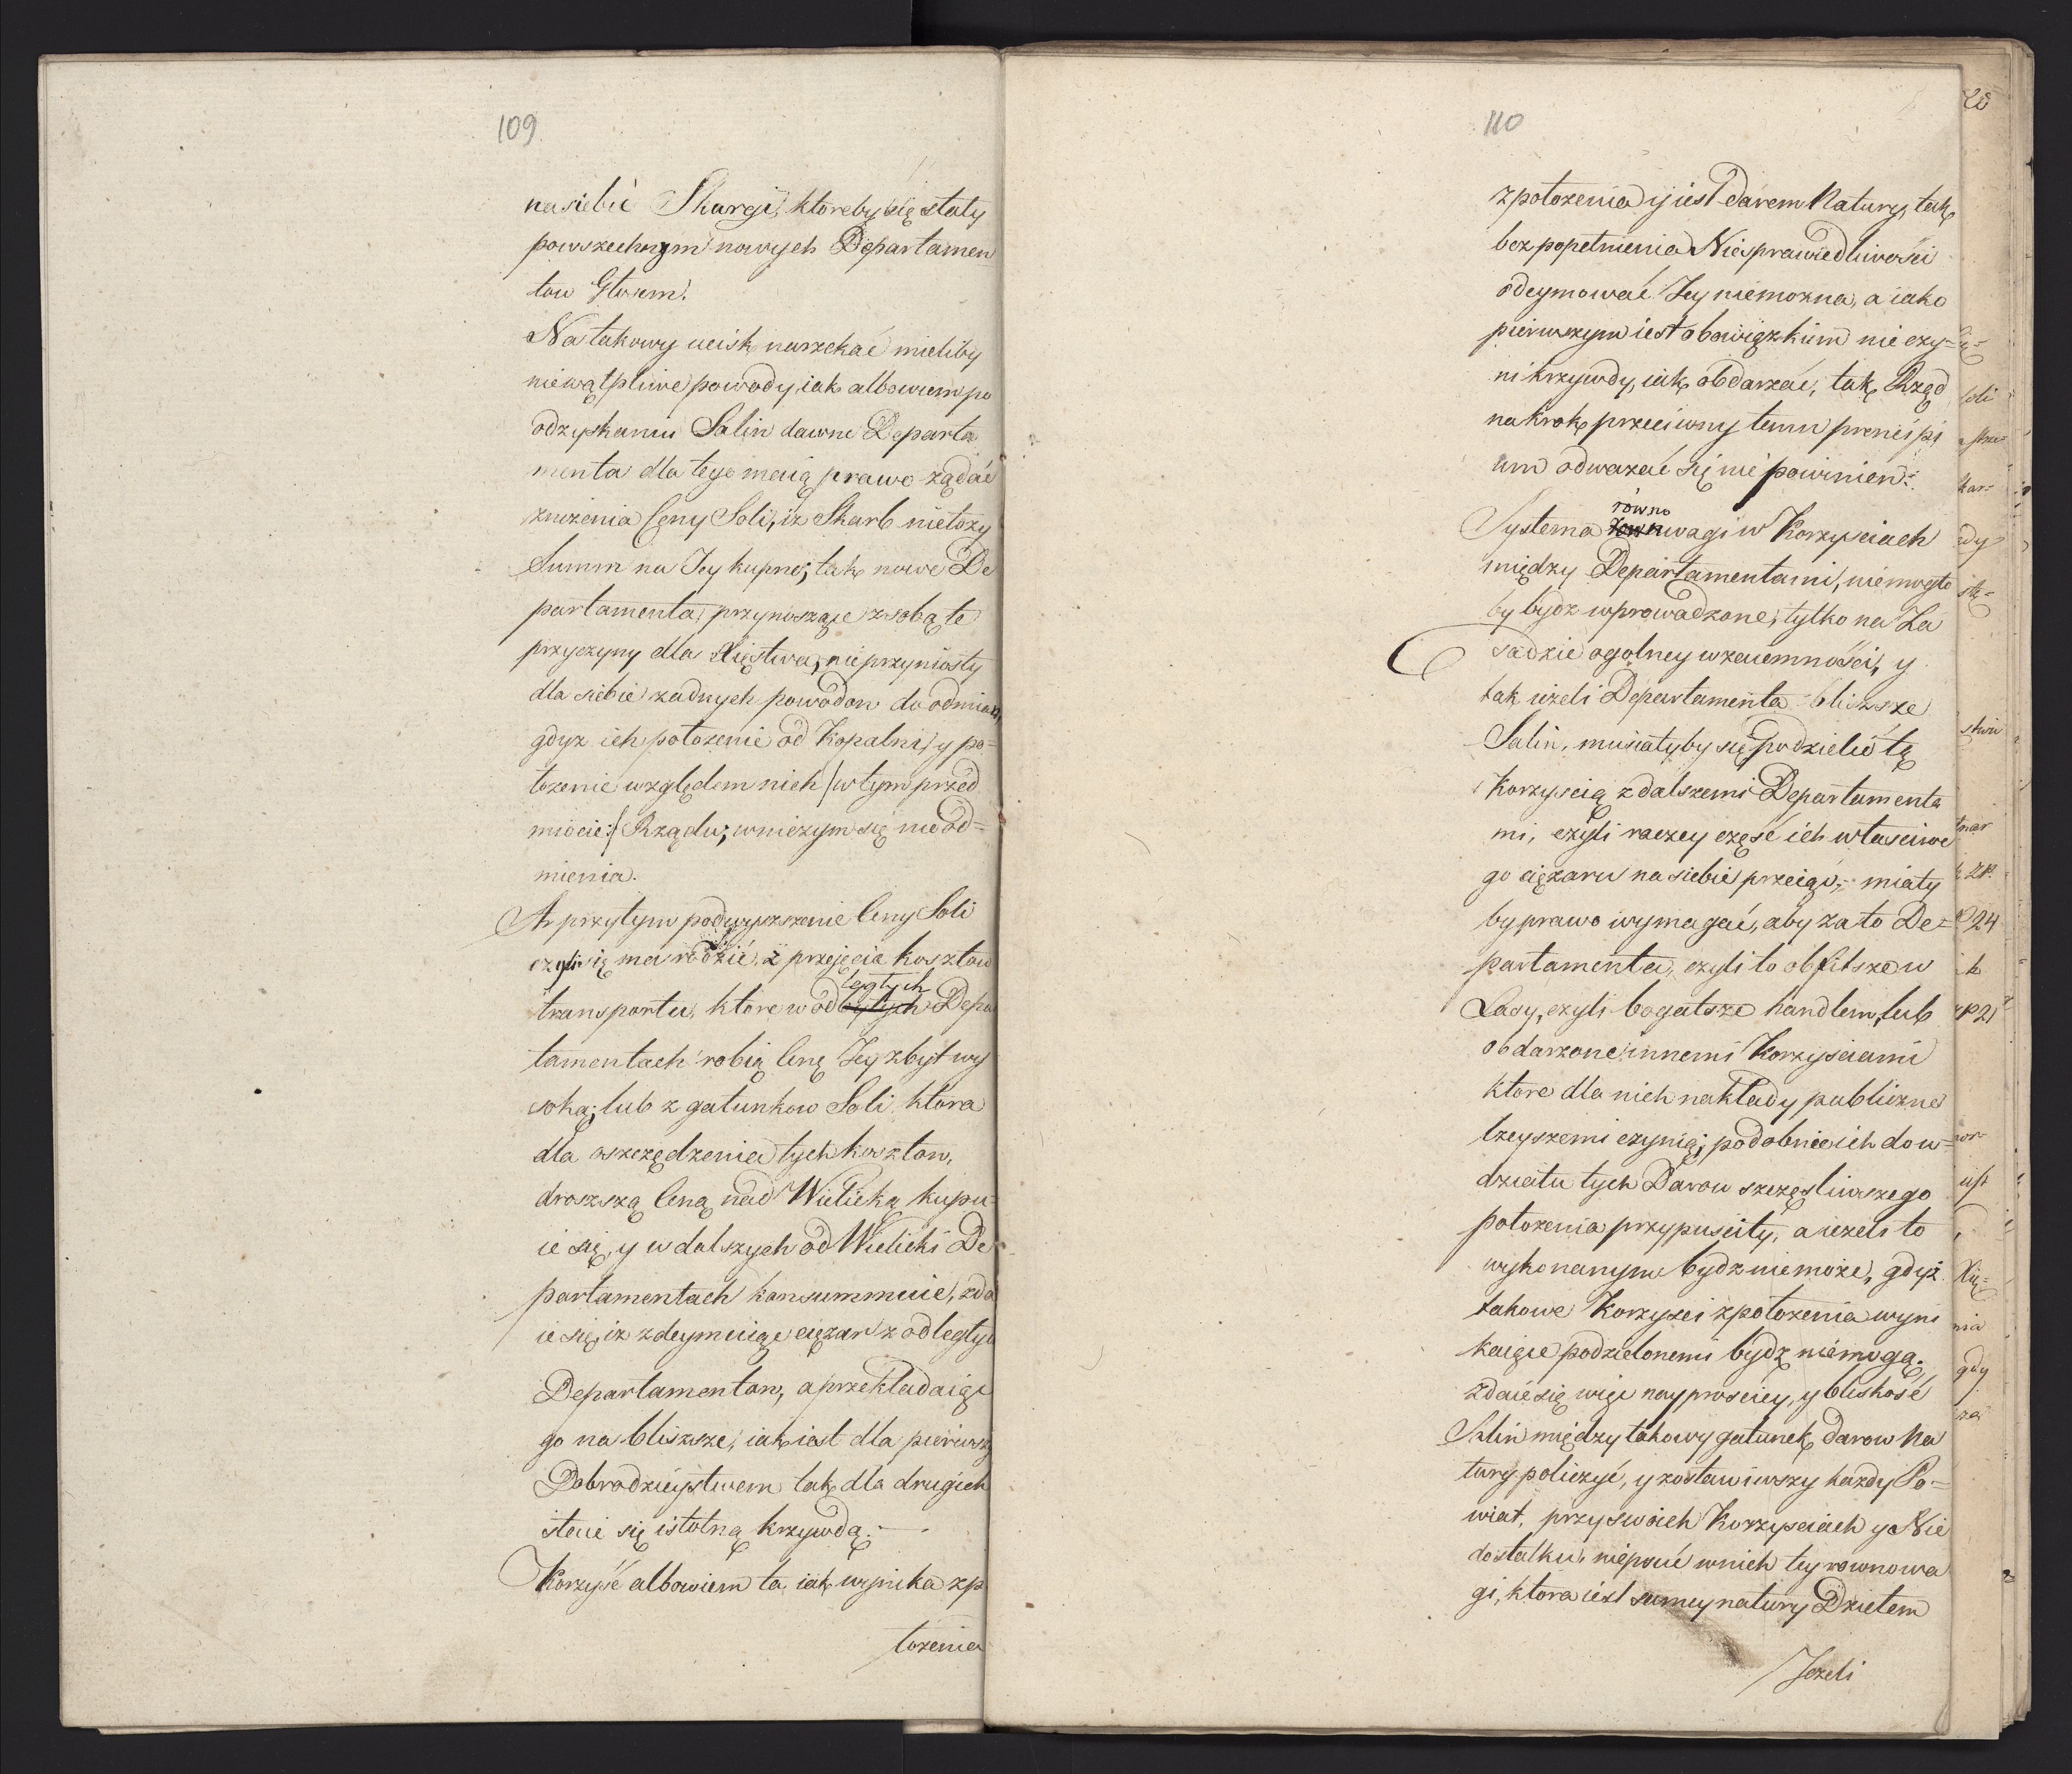 109
na siebie Skargi, ktoreby się stały
powszechnym nowych Departamen
tow Głosem.
Na takowy ucisk narzekać mieliby
niewątpliwe powody, iak albowiem po
odzyskaniu Salin dawne Departa
menta dla tego maią prawo żądać
zniżenia Ceny Soli, iż Skarb nie łoży
Summ na Jey kupno; tak nowe De
partamenta, przynosząc z sobą te
przyczyny dla Xięstwa, nie przyniosły
dla siebie żadnych powodow do odmian,
gdyż ich położenie od Kopalni, y po=
łożenie względem nich /w tym przed
miocie:/ Rządu; w niczym się nie od=
mienia.
A przytym podwyższenie Ceny Soli
czyli się ma rodzić, z przejęcia kosztow
transportu, ktore w odległych Depar
tamentach robią Cenę Jey zbyt wy
soką; lub z gatunkow Soli, ktora
dla oszczędzenia tych kosztow,
droższą Ceną nad Wielicką kupu=
ie się, y w dalszych od Wielicki De
partamentach konsummuie, zda
ie się, iż zdeymuiąc ciężar z odległych
Departamentow, a przekładaiąc
go na bliższe, iak iest dla pierwszych
Dobrodzieystwem tak dla drugich
staie się istotną krzywdą. —.
Korzyść albowiem ta, iak wynika z po
łożenia
110
z położenia y iest darem Natury, tak
bez popełnienia Niesprawiedliwości
odeymować Jey nie można, a iako
pierwszym iest obowiązkiem nie czy=
ni krzywdy, iak obdarzać, tak Rząd
na krok przeciwny temu princípi
um odważać się nie powinien.
równo
Systema wagi w Korzyściach
między Departamentami, niemogło
by bydz wprowadzone, tylko na Za
sadzie ogolney wzaiemności, y
tak ieżeli Departamenta bliższe
Salin, musiałyby się podzielić tą
Korzyścią z dalszemi Departamenta
mi, czyli raczey część ich własciwe
go ciężaru na siebie przeiąć, miały
by prawo wymagać, aby za to De=
partamenta, czyli to obfitsze w
Lasy, czyli bogatsze handlem, lub
obdarzone innemi Korzyściami
ktore dla nich nakłady publiczne
lżeyszemi czynią; podobnie ich do w=
działu tych Darow szczęśliwszego
położenia przypuściły, a ieżeli to
wykonanym bydz nie może, gdyż
takowe Korzyści z położenia wyni
kaiące podzielonemi bydź niemogą.
zdaie się więc nayprościey, y bliskość
Salin między takowy gatunek darow Na
tury policzyć, y zostawiwszy każdy Po=
wiat, przy swoich Korzyściach y Nie
dostatku, niepsuć w nich tey rownowa
gi, ktora iest samey natury Dziełem
Jeżeli